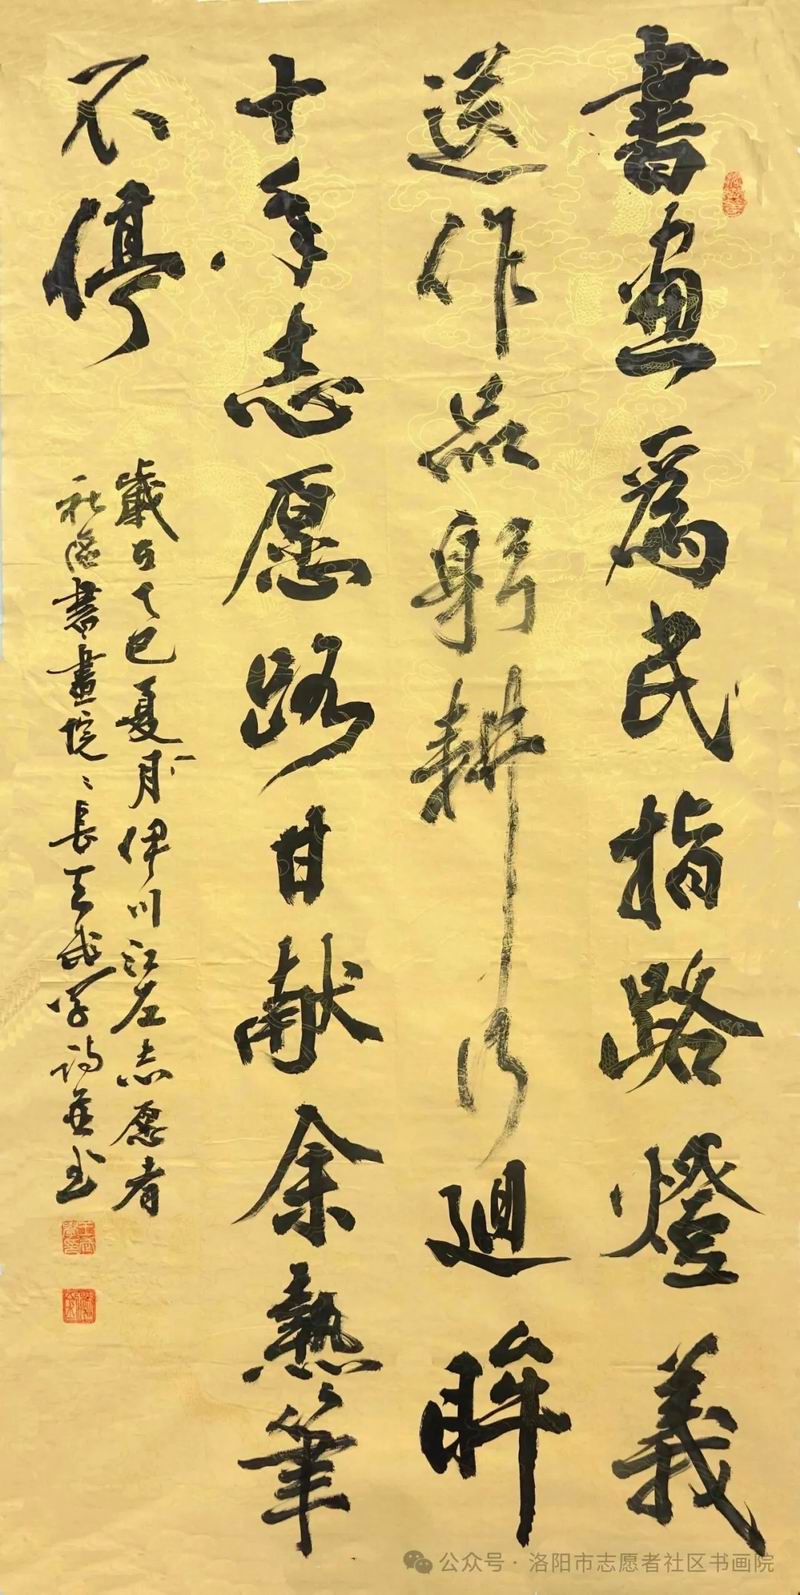 書画爲民指路燈義
送作品躬耕行迴眸
十年志愿路甘献余熱筆
不停
歲在乙巳夏月伊川江左志愿者
社區書畫院〻長王学詩并书
公众号 · 洛阳市志愿者社区书画院